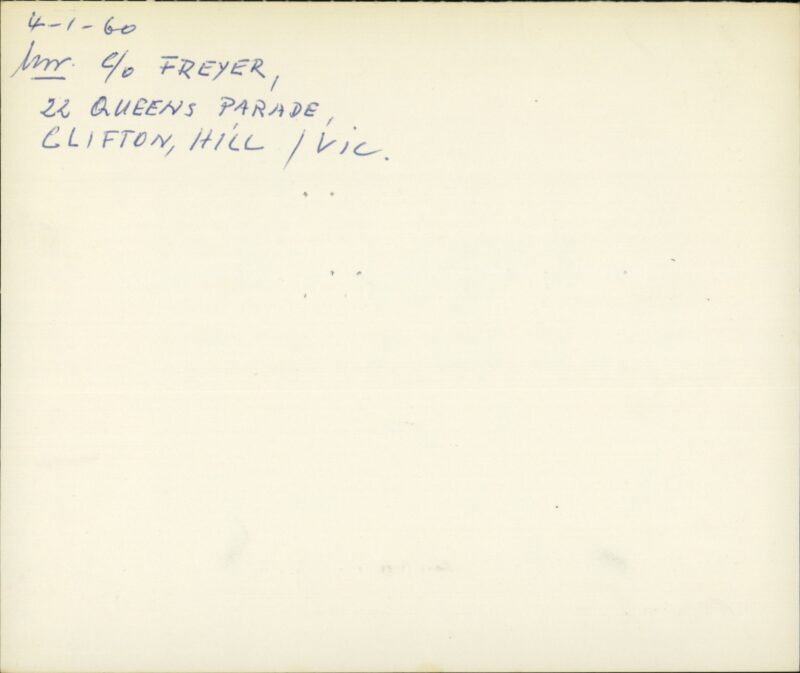 4-1-60
c/o FREYER,
22 QUEENS PARADE,
CLIFTON, HILL / VIC.